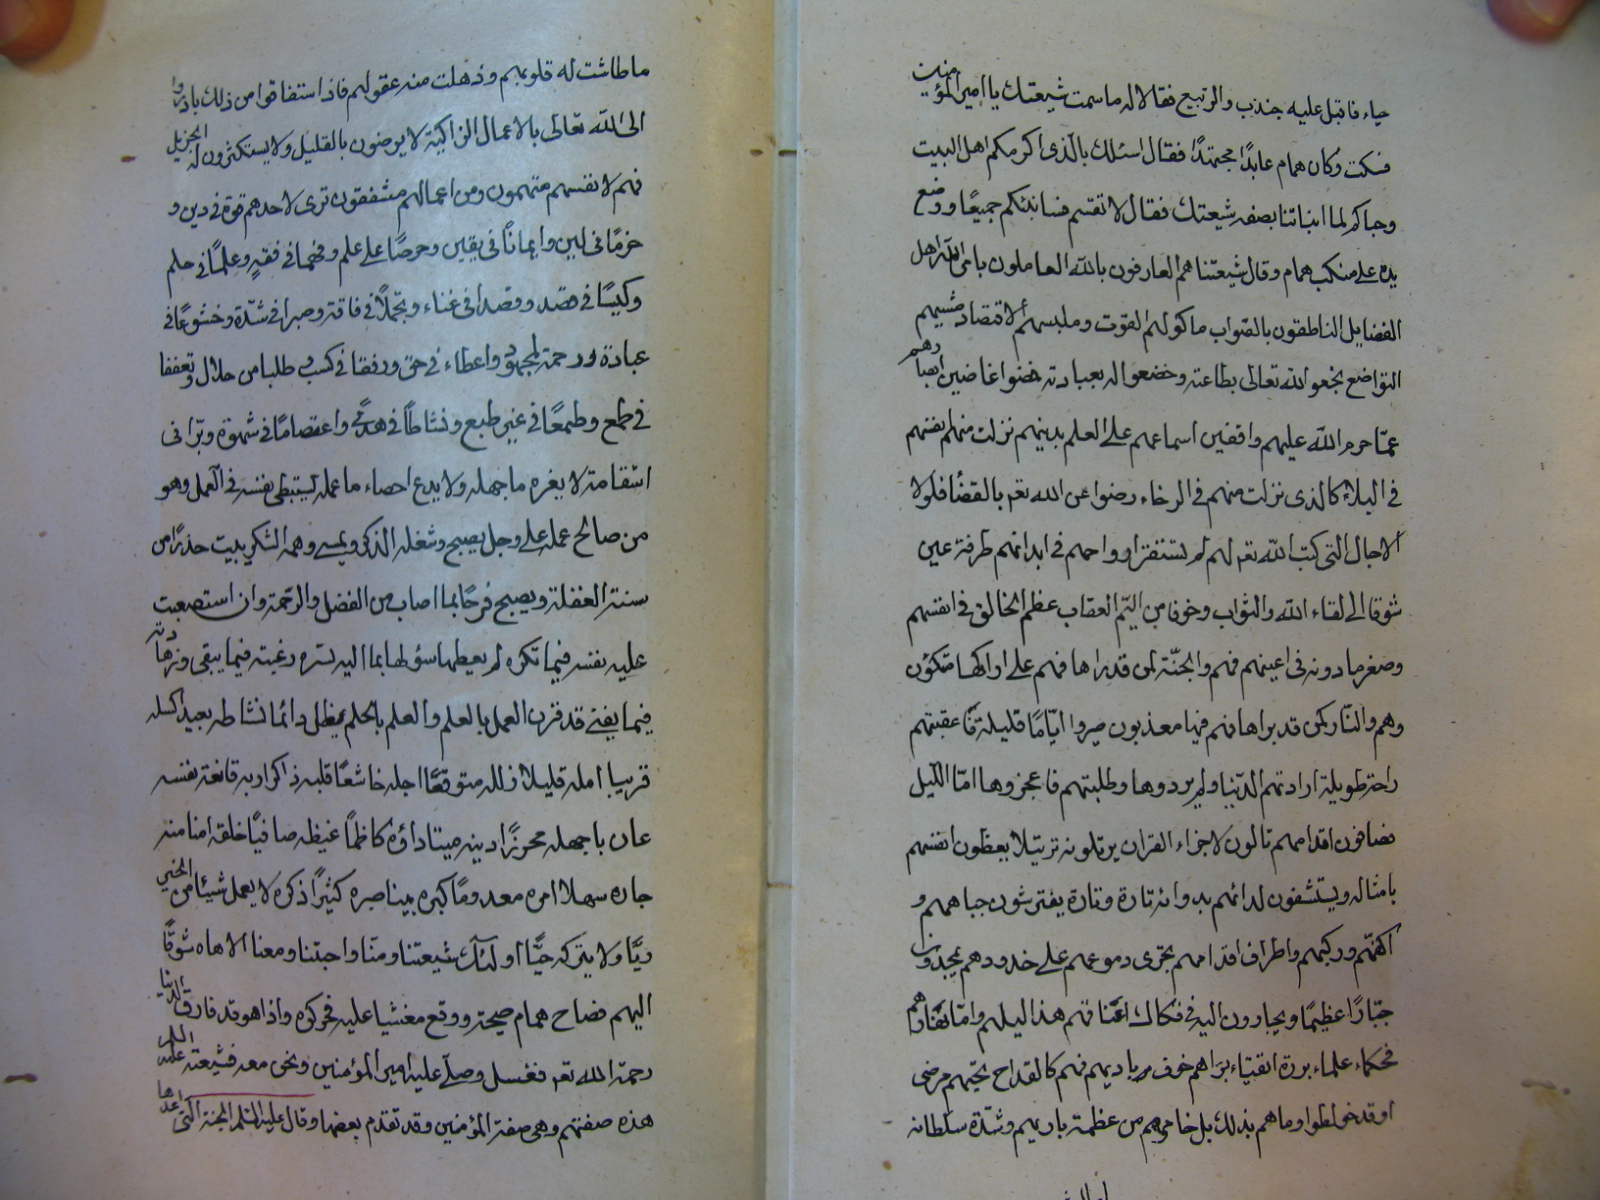 حياء فاقبل عليه جندب والربيع فقالا له ما سمت شيعتك يا امير المؤمنين
فسكت وكان همام عابدًا مجتهدًا فقال اسئلك بالذى اكرمكم اهل البيت
وحباكم لما انباتنا بصفه شيعتك فقال لا تقسم فسانبئكم جميعًا ووضع
يده على منكب همام وقال شيعتنا هم العارفون بالله العاملون بامر الله اهل
الفضايل الناطقون بالصواب ماكولهم القوت وملبسهم الاقتصاد مشيهم
التواضع بخعوا لله تعالى بطاعته وخضعوا له بعبادته مضوا غاضين ابصارهم
عمّا حرم الله عليهم واقفين اسماعهم على العلم بدينهم نزلت منهم انفسهم
فى البلاء كالذى نزلت منهم فى الرخاء رضوا عن الله تعه بالقضا فلولا
الاجال التى كتب الله تعه لهم لم تستقر ارواحهم فى ابدانهم طرفة عين
شوقا الى لقاء الله والثواب وخوفا من اليم العقاب عظم الخالق فى انفسهم
وصغر ما دونه فى اعينهم فهم والجنّة كمن قد راها فهم على اراكها متكؤن
وهم والنّار كمن قد راها فهم فيها معذبون صبروا ايّامًا قليلة فاعقبتهم
راحة طويلة ارادتهم الدّنيا ولم يريدوها وطلبتهم فاعجزوها امّا الليل
فصافون اقدامهم تالون لاجزاء القران يرتلونه ترتيلا يعظون انفسهم
بامثاله ويستشفون لدائهم بدوائه تارة وتارة يفترشون جباههم و
اكفّهم وركبهم واطراف اقدامهم تجرى دموعهم على خدودهم يمجدون
جبّارًا عظيمًا ويجارون اليه فى فكاك اعناقهم هذا ليلهم وامّا نهارهم
فحكماء علماء بررة اتقياء براهم خوف باريهم فهم كالقداح تحسبهم مرضى
او قد خولطوا وما هم بذلك بل خامرهم من عظمة باريهم وشدّة سلطانه
ما طاشت له قلوبهم وذهلت منه عقولهم فاذا استفاقوا من ذلك بادروا
الى الله تعالى بالاعمال الزاكية لا يرضون بالقليل ولا يستكثرون له الجزيل
فهم لانفسهم متهمون ومن اعمالهم مشفقون ترى لاحدهم قوة فى دين و
حزمًا فى لين وايمانًا فى يقين وحرصًا على علم وفهما فى فقهٍ وعلمًا فى حلم
وكيسًا فى قصد وقصدا فى غناء وتجملًا فى فاقة وصبرا فى شدّة وخشوعًا فى
عبادة ورحمة لمجهود واعطاء فى حق ورفقا فى كسب وطلبا من حلال وتعففا
فى طمع وطمعًا فى غير طبع ونشاطًا فى هدى واعتصامًا فى شهوة وبرّا فى
استقامة لا يغره ما جهله ولا يدع احصاء ما عمله يستبطى نفسه فى العمل وهو
من صالح عمله على وجل يصبح وشغله الذكر ويمسى وهمه الشكر يبيت حذرًا من
سنة الغفلة ويصبح فرحًا بما اصاب من الفضل والرّحمة وان استصعبت
عليه نفسه فيما تكره لم يعطها سؤلها بما اليه تسره رغبته فيما يبقى وزهادته
فيما يفنى قد قرن العمل بالعلم والعلم بالحلم يظل دائما نشاطه بعيد كسله
قريبا امله قليلا زلله متوقعًا اجله خاشعًا قلبه ذاكرا ربه قانعة نفسه
عازبا جهله محرزًا دينه ميتا داؤه كاظمًا غيظه صافيًا خلقه امنا منه
جاره سهلا امره معدومًا كبره بينا صبره كثيرًا ذكره لا يعمل شيئا من الخير
ريًا ولا يتركه حيًا اولئك شيعتنا ومنّا واحبتنا ومعنا الا هاه شوقًا
اليهم فصاح همام صيحة ووقع مغشيا عليه فحركوه واذا هو قد فارق الدنيا
رحمة الله تعه فغسل وصلّى عليه امير المؤمنين ونحن معه فشيعته
هذه صفتهم وهى صفة المؤمنين وقد تقدم بعضها وقال عليه السّلم الجنة الّتى اعدها